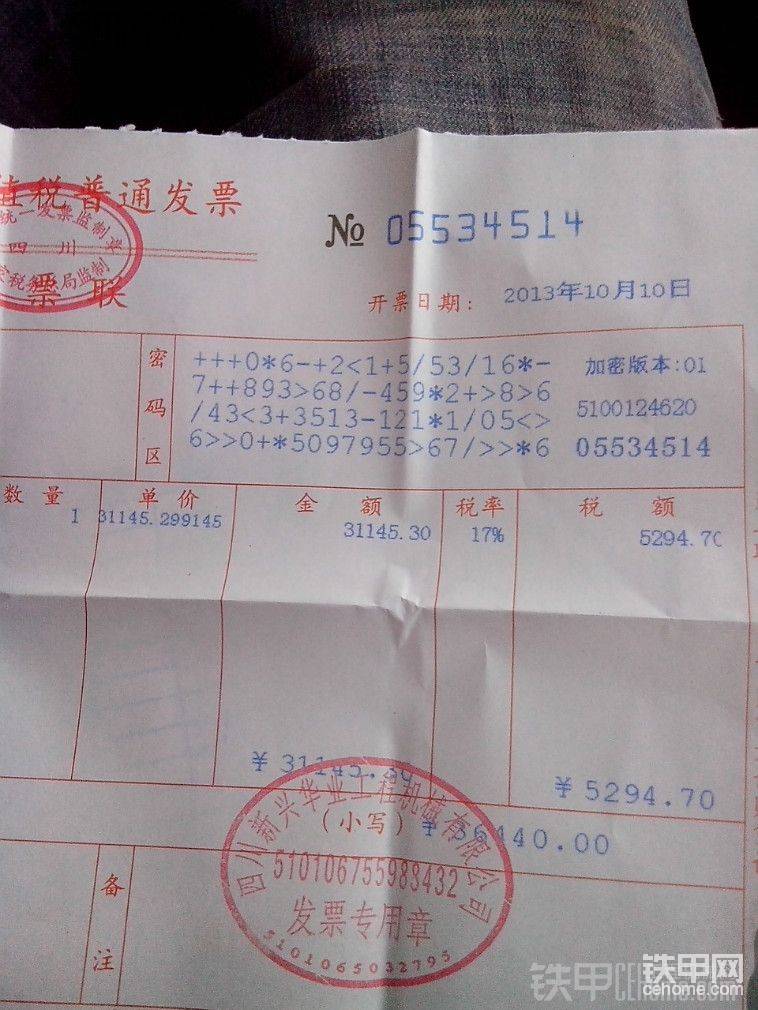 值税普通发票
统一发票监制章
四川
家税务总局监制
票联
№ 05534514
开票日期： 2013年10月10日
密码区
+++0*6-+2<1+5/53/16*-
7++893>68/-459*2+>8>6
/43<3+3513-121*1/05<>
6>>0+*5097955>67/>>*6
加密版本:01
5100124620
05534514
数量 单价 金额 税率 税额
1 31145.299145 31145.30 17% 5294.70
¥31145.30 ¥5294.70
(小写) ¥36440.00
备注
四川新兴华业工程机械有限公司
510106755983432
发票专用章
5101065032795
铁甲网
cehome.com
铁甲CEHOME.COM